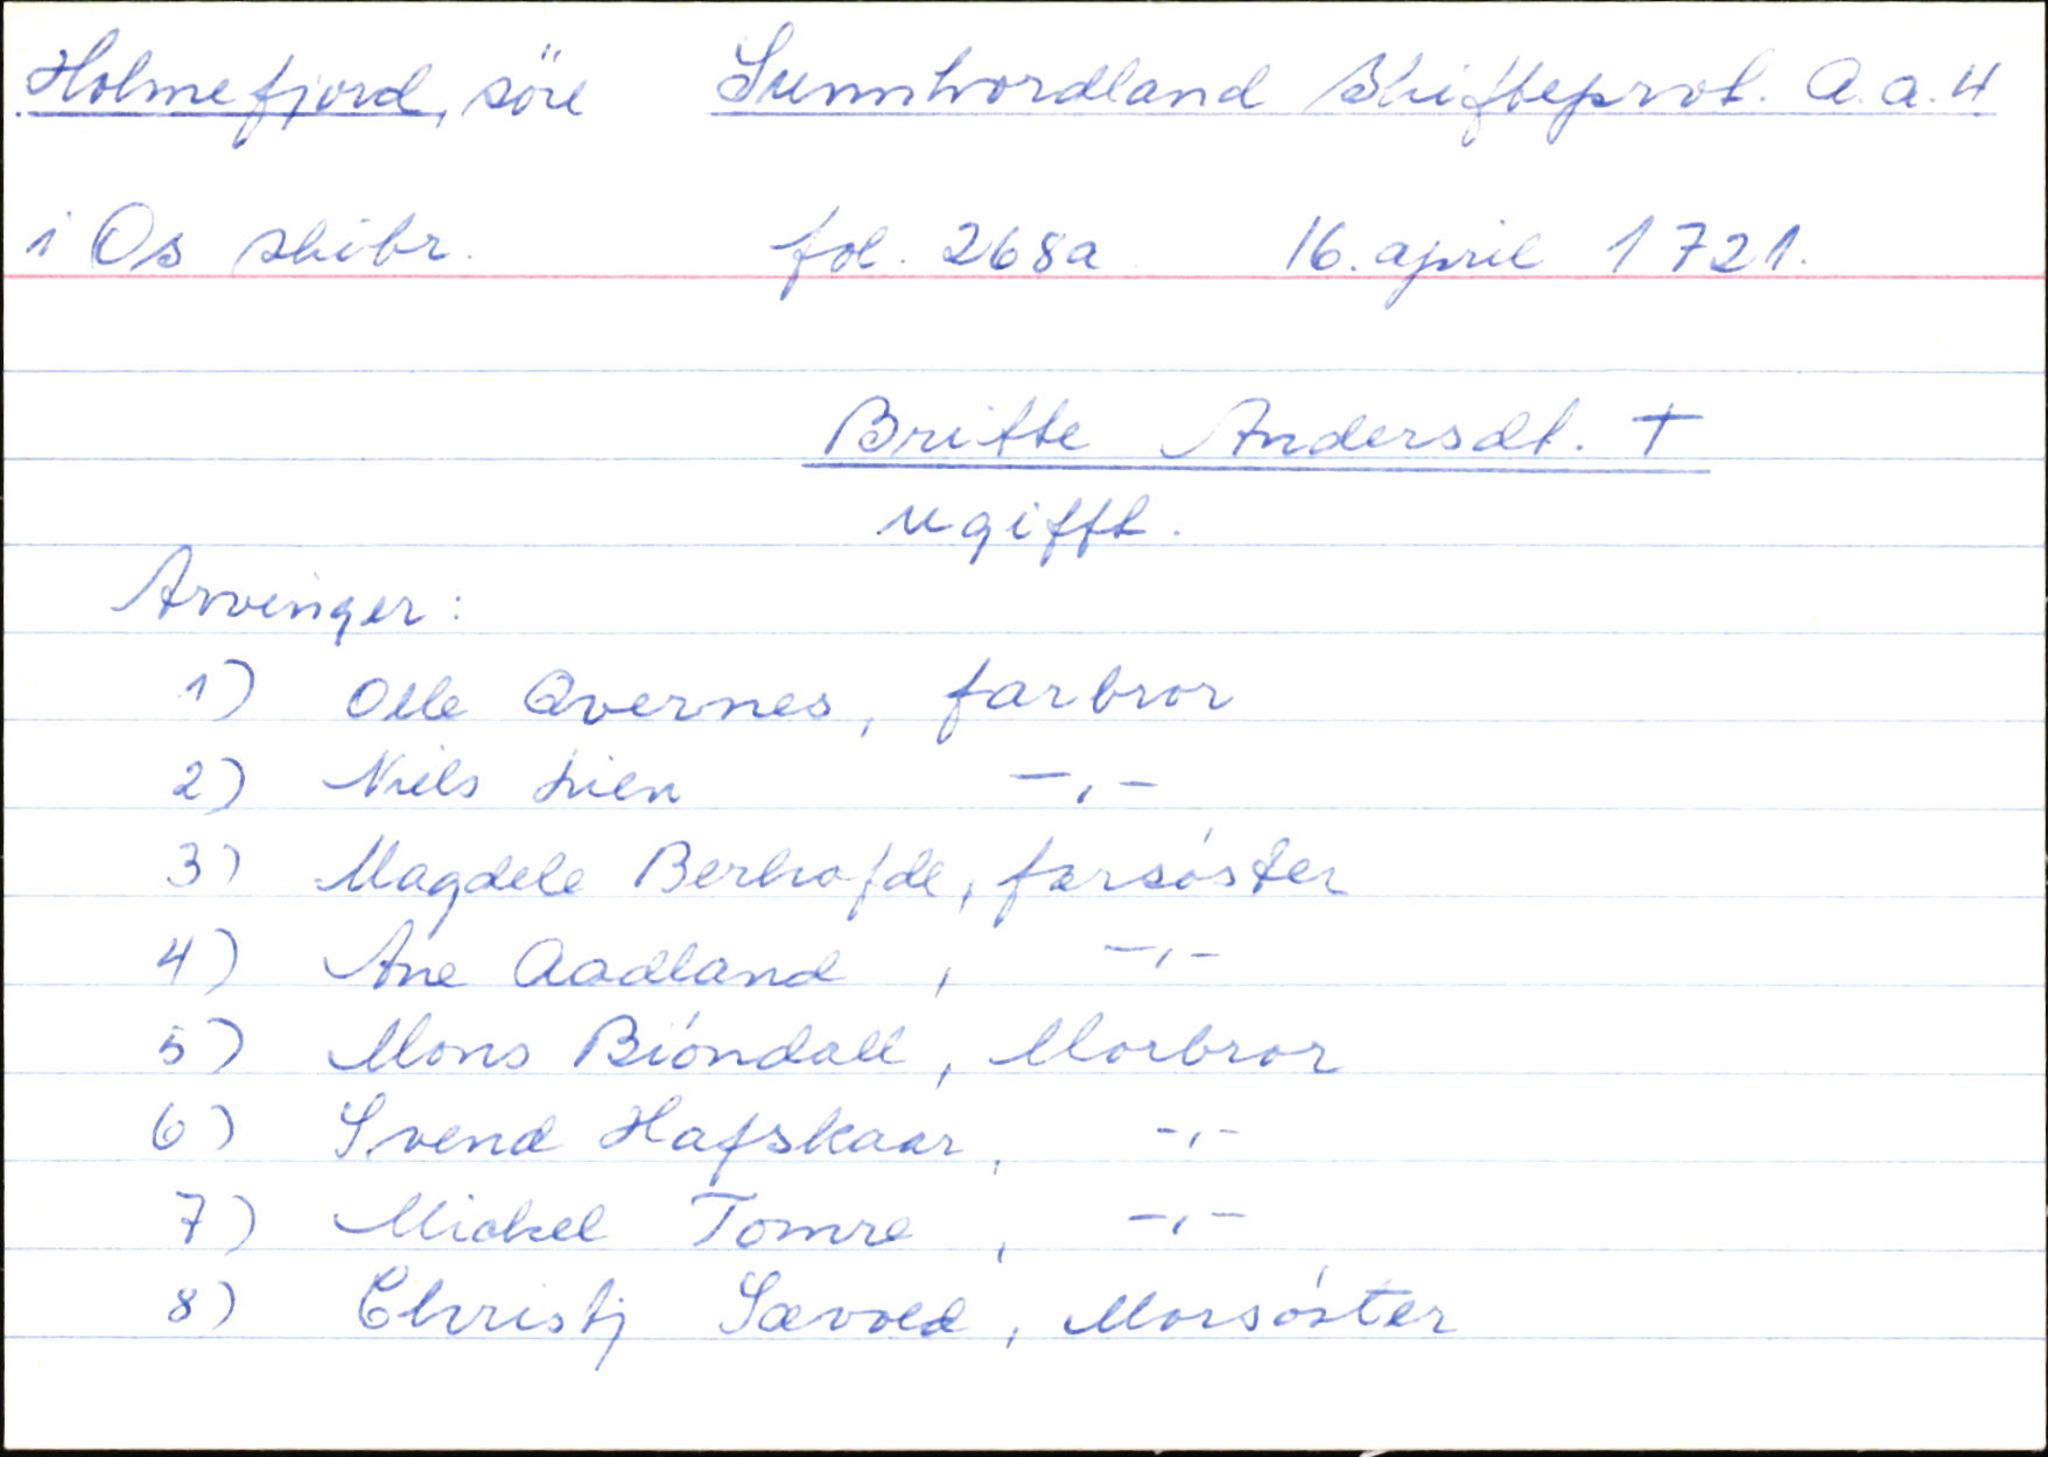 Holmefjord, söre Sunnhordland Skifteprot. A.a.4
i Os skibr. fol. 268a 16. april 1721.
Britte Andersdt. †
ugifft.
Arvinger:
1) Olle Qvernes, farbror
2) Niels Lien -,-
3) Magdele Berhofde, farsóster
4) Ane Aadland, -,-
5) Mons Bióndall, Morbror
6) Svend Hafskaar, -,-
7) Mickel Tomre, -,-
8) Christj Sævold, Morsóster